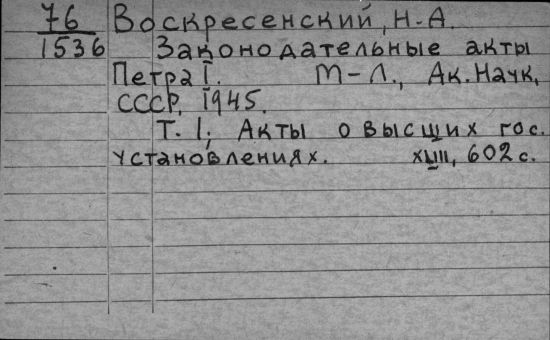 76 Воскресенский, Н-А.
1536 Законодательные акты
Петра I. М-Л., Ак. Наук,
СССР, 1945.
Т. I; Акты о высщих гос.
установлениях. XLIII, 602 с.